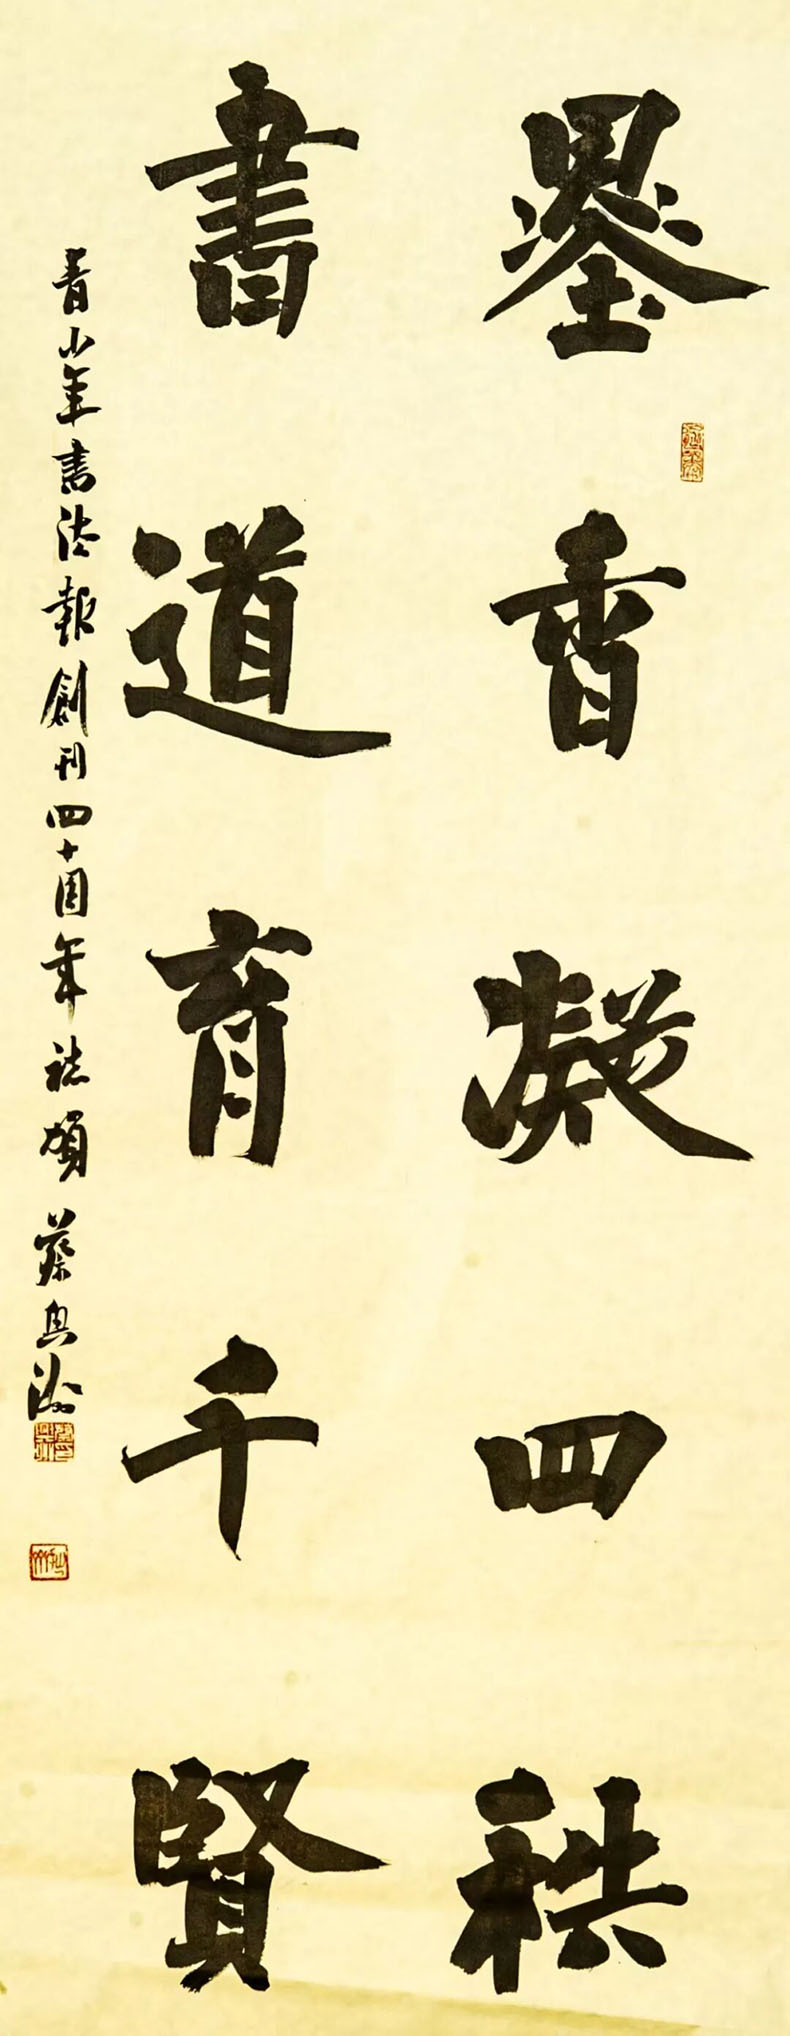 墨香凝四秩
書道育千賢
青少年書法報創刊四十周年誌賀 蔡